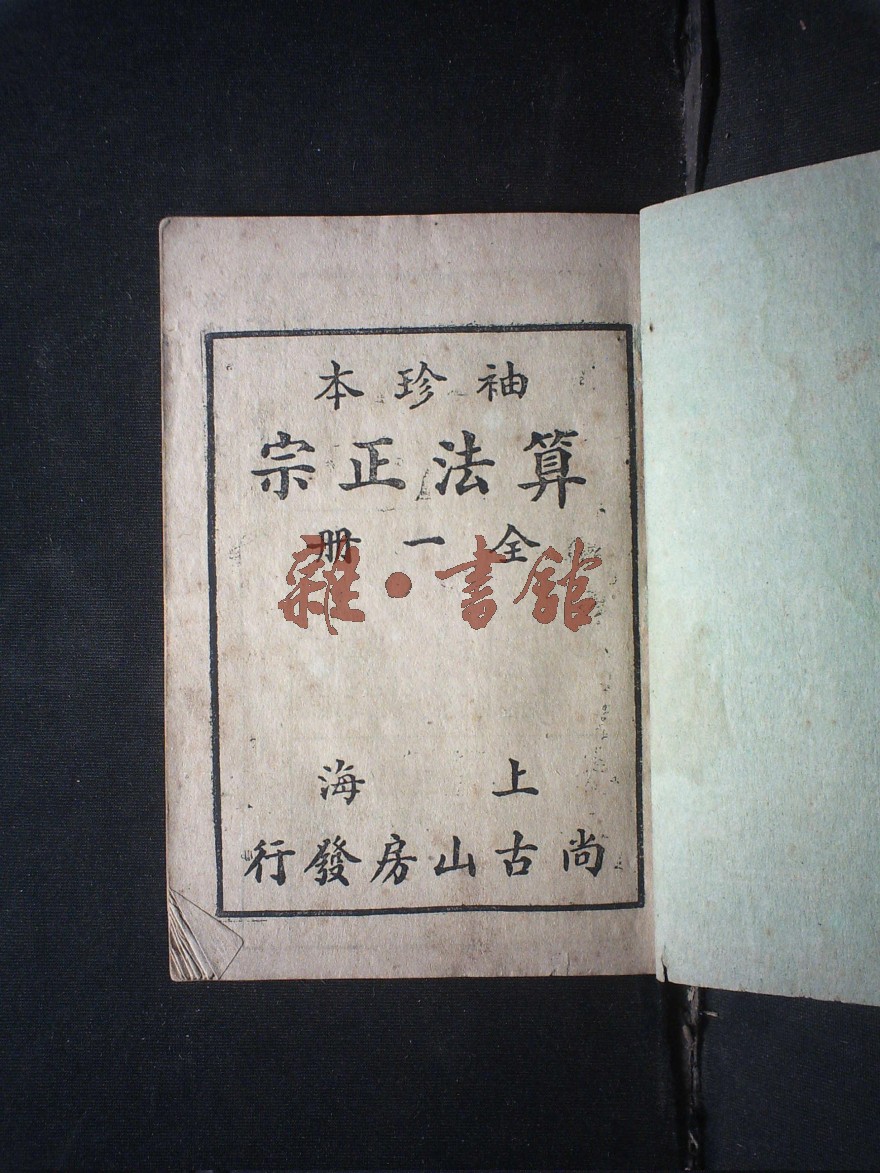 袖珍本
算法正宗
全一册
雜·書館
上海
尚古山房發行